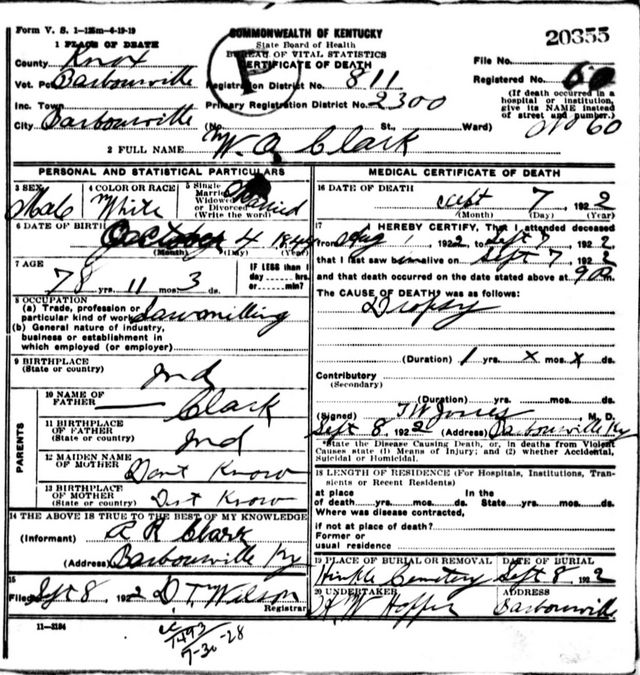 Form V. S. 1-125m-6-19-19
COMMONWEALTH OF KENTUCKY
State Board of Health
BUREAU OF VITAL STATISTICS
CERTIFICATE OF DEATH
20355
1 PLACE OF DEATH
County Knox
Vot. Pct. Barbourville
Inc. Town
City Barbourville
Registration District No. 811
Primary Registration District No. 2300
(No. St., Ward)
File No.
Registered No. 60
(If death occurred in a hospital or institution, give its NAME instead of street and number.)
No 60
2 FULL NAME W. A. Clark
PERSONAL AND STATISTICAL PARTICULARS
3 SEX Male
4 COLOR OR RACE White
5 Single Married Widowed or Divorced (Write the word) Married
6 DATE OF BIRTH October 4
(Month) (Day) (Year)
7 AGE
78 yrs. 11 mos. 3 ds.
IF LESS than 1 day hrs. or min.?
8 OCCUPATION
(a) Trade, profession or particular kind of work Sawmilling
(b) General nature of industry, business or establishment in which employed (or employer)
9 BIRTHPLACE (State or country) Ind
PARENTS
10 NAME OF FATHER — Clark
11 BIRTHPLACE OF FATHER (State or country) Ind
12 MAIDEN NAME OF MOTHER Dont Know
13 BIRTHPLACE OF MOTHER (State or country) Dont Know
14 THE ABOVE IS TRUE TO THE BEST OF MY KNOWLEDGE
(Informant) A R Clark
(Address) Barbourville Ky
15
Filed Sept 8, 1922 D. T. Wilson
Registrar
11-3184
cc
7493
7-30-28
MEDICAL CERTIFICATE OF DEATH
16 DATE OF DEATH Sept 7, 1922
(Month) (Day) (Year)
17 I HEREBY CERTIFY, That I attended deceased
from Aug 1, 1922, to Sept 7, 1922
that I last saw him alive on Sept 7, 1922
and that death occurred on the date stated above at 9 m.
The CAUSE OF DEATH* was as follows:
Dropsy
(Duration) 1 yrs. x mos. x ds.
Contributory
(Secondary)
(Duration) yrs. mos. ds.
(Signed) T W Jones M. D.
Sept 8, 1922 (Address) Barbourville Ky
*State the Disease Causing Death, or, in deaths from Violent Causes state (1) Means of Injury; and (2) whether Accidental, Suicidal or Homicidal.
18 LENGTH OF RESIDENCE (For Hospitals, Institutions, Transients or Recent Residents)
at place of death yrs. mos. ds. In the State yrs. mos. ds.
Where was disease contracted,
if not at place of death?
Former or
usual residence
19 PLACE OF BURIAL OR REMOVAL
Hinkle Cemetery
DATE OF BURIAL
Sept 8, 1922
20 UNDERTAKER
W Hopper
ADDRESS
Barbourville